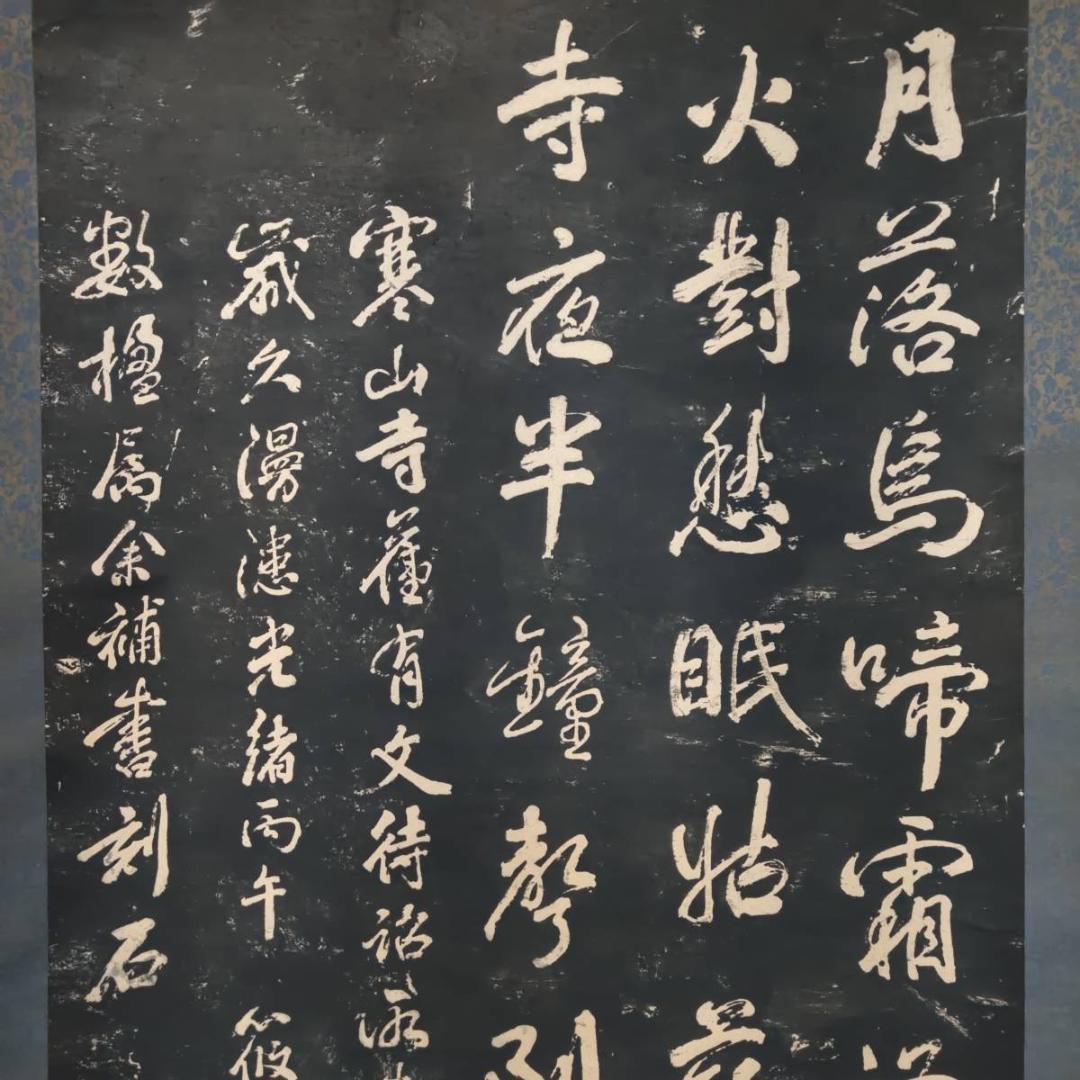 月落烏啼霜
火對愁眠姑蘇
寺夜半鐘聲到
寒山寺舊有文待詔所
歲久漫漶光緒丙午筱
數楹屬余補書刻石